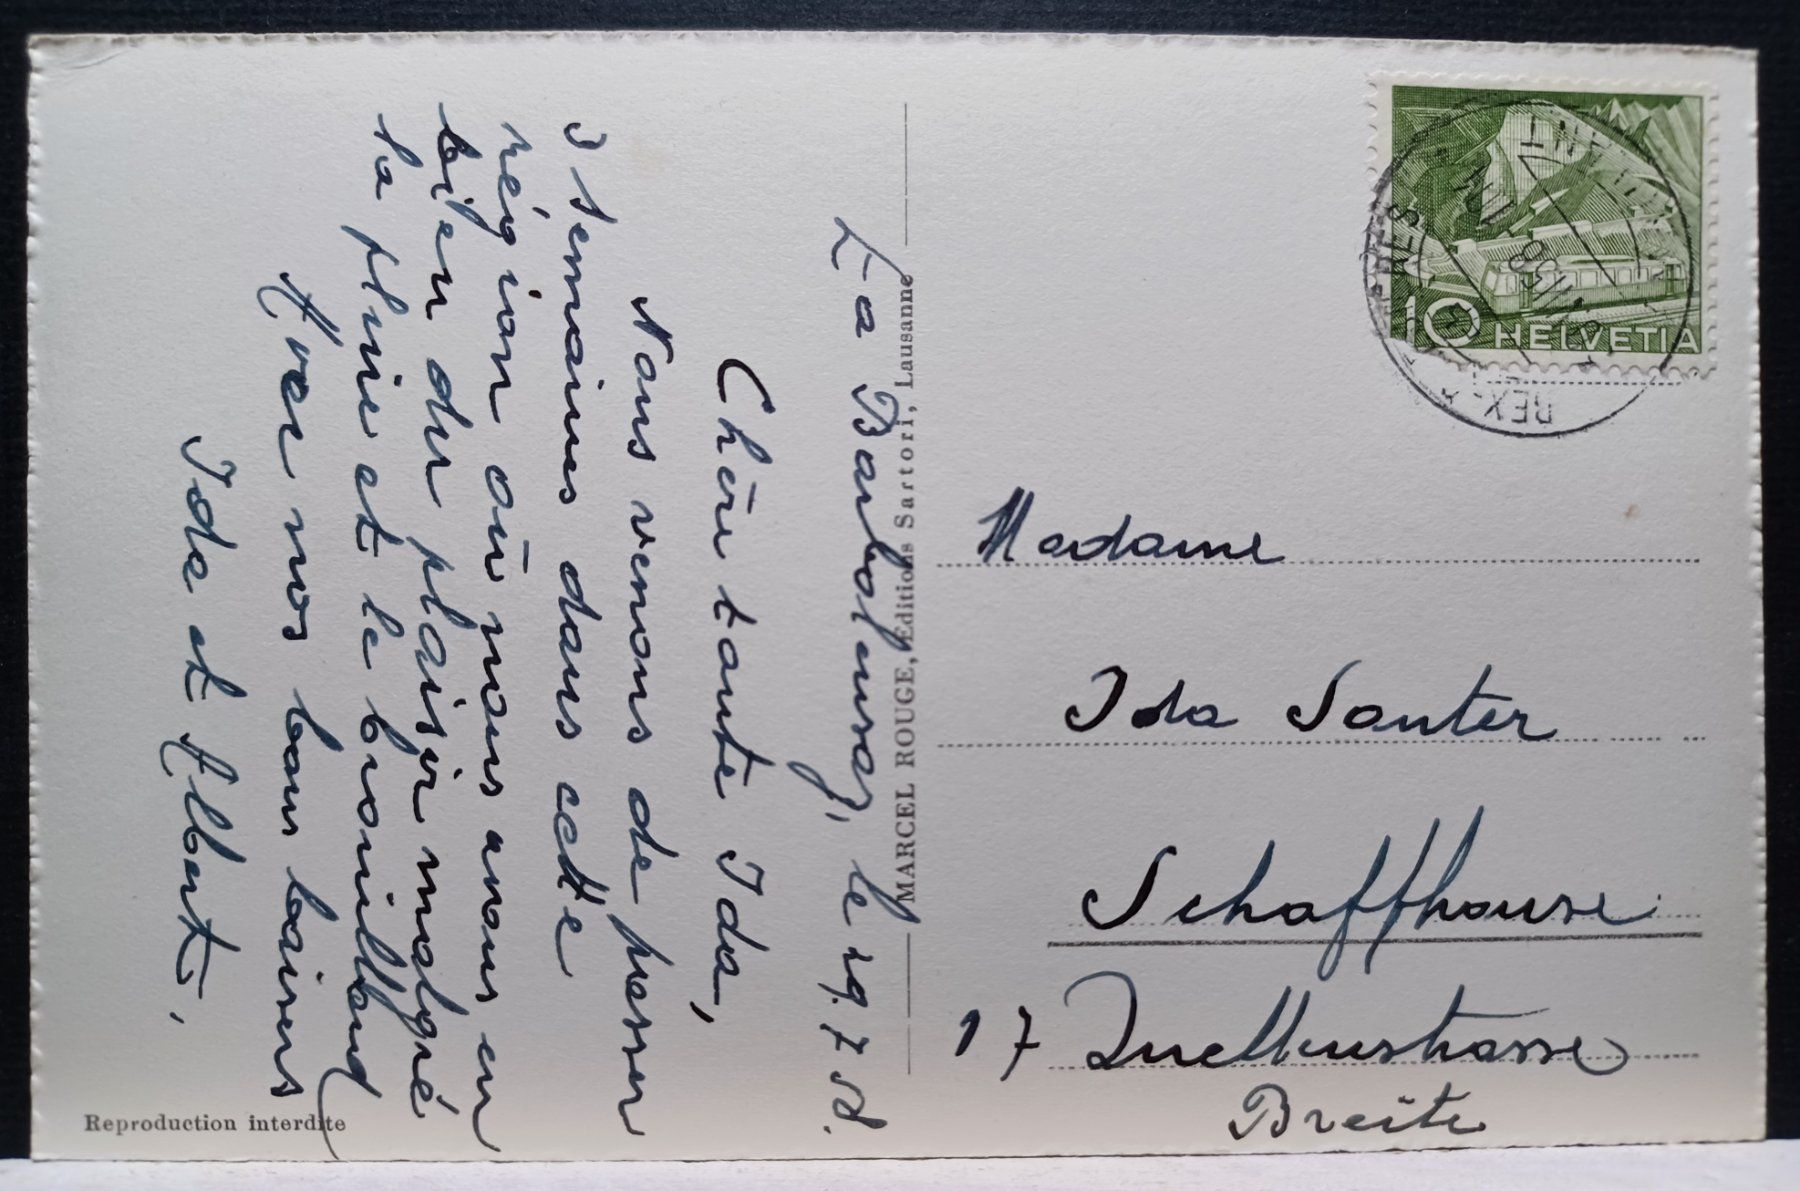 La Barboleusaz, le 19.7.58.
Chère tante Ida,
Nous venons de passer
3 semaines dans cette
région où nous avons eu
bien du plaisir malgré
la pluie et le brouillard
Avec nos bons baisers
Ida et Albert.
Reproduction interdite
MARCEL ROUGE, Editions Sartori, Lausanne
10 HELVETIA
BEX-
Madame
Ida Sauter
Schaffhouse
17 Quellenstrasse
Breite